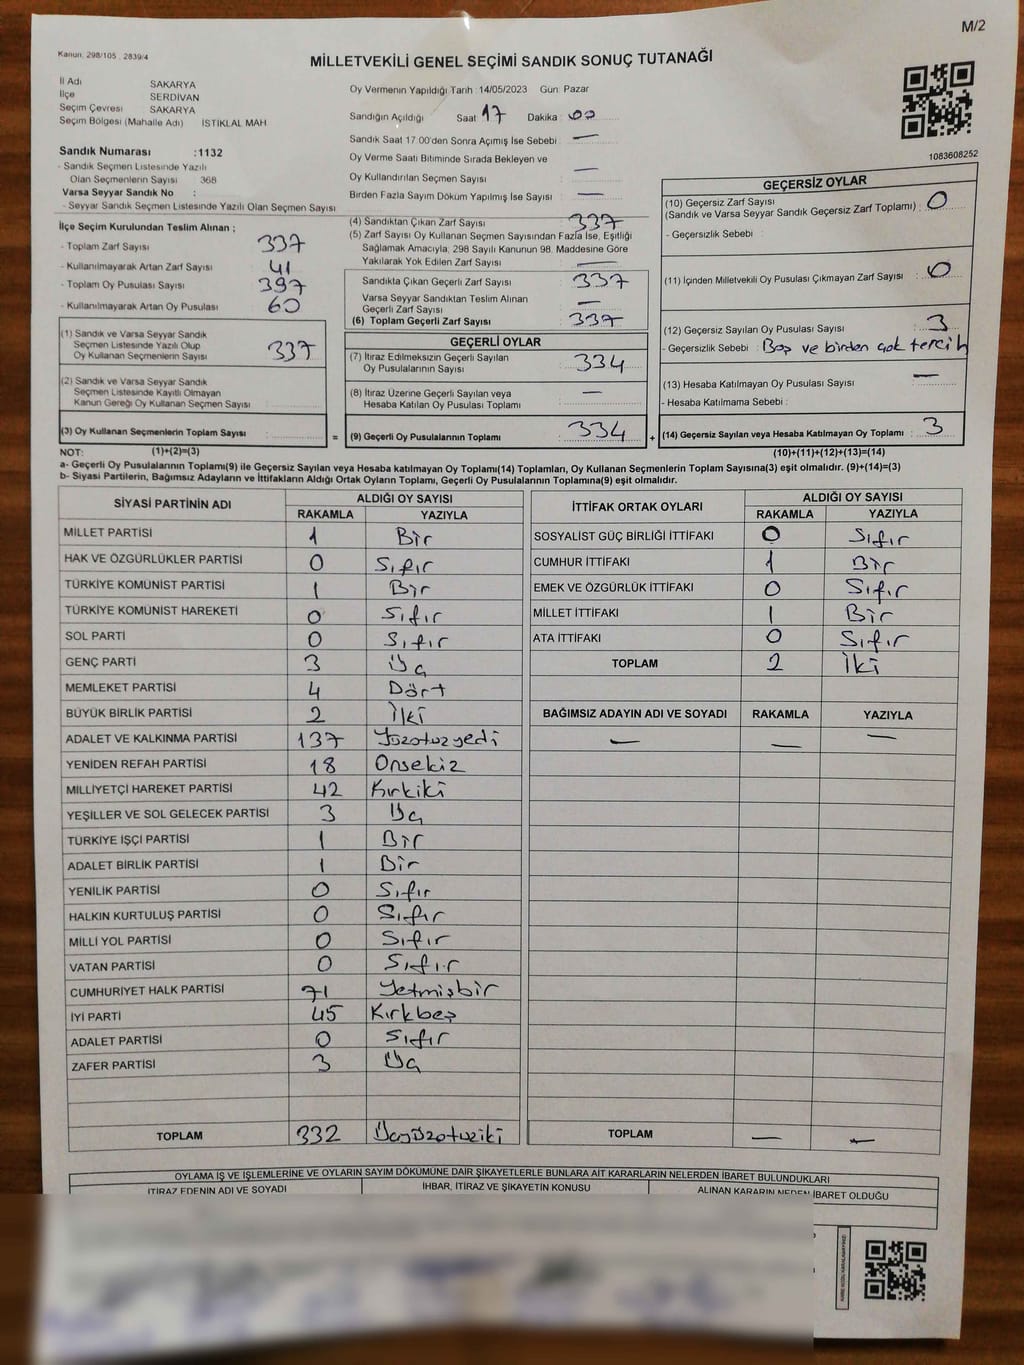 M/2
Kanun. 298/105 , 2839/4
MİLLETVEKİLİ GENEL SEÇİMİ SANDIK SONUÇ TUTANAĞI
İl Adı SAKARYA
İlçe SERDİVAN
Seçim Çevresi SAKARYA
Seçim Bölgesi (Mahalle Adı) İSTİKLAL MAH
Sandık Numarası :1132
- Sandık Seçmen Listesinde Yazılı
Olan Seçmenlerin Sayısı 368
Varsa Seyyar Sandık No :
- Seyyar Sandık Seçmen Listesinde Yazılı Olan Seçmen Sayısı
İlçe Seçim Kurulundan Teslim Alınan ;
- Toplam Zarf Sayısı 337
- Kullanılmayarak Artan Zarf Sayısı 41
- Toplam Oy Pusulası Sayısı 397
- Kullanılmayarak Artan Oy Pusulası 60
(1) Sandık ve Varsa Seyyar Sandık
Seçmen Listesinde Yazılı Olup
Oy Kullanan Seçmenlerin Sayısı 337
(2) Sandık ve Varsa Seyyar Sandık
Seçmen Listesinde Kayıtlı Olmayan
Kanun Gereği Oy Kullanan Seçmen Sayısı :
(3) Oy Kullanan Seçmenlerin Toplam Sayısı :
Oy Vermenin Yapıldığı Tarih :14/05/2023 Gün: Pazar
Sandığın Açıldığı Saat 17 Dakika : 00
Sandık Saat 17:00'den Sonra Açımış İse Sebebi : —
Oy Verme Saati Bitiminde Sırada Bekleyen ve
Oy Kullandırılan Seçmen Sayısı : —
Birden Fazla Sayım Döküm Yapılmış İse Sayısı : —
(4) Sandıktan Çıkan Zarf Sayısı : 337
(5) Zarf Sayısı Oy Kullanan Seçmen Sayısından Fazla İse, Eşitliği
Sağlamak Amacıyla; 298 Sayılı Kanunun 98. Maddesine Göre
Yakılarak Yok Edilen Zarf Sayısı : —
Sandıkta Çıkan Geçerli Zarf Sayısı : 337
Varsa Seyyar Sandıktan Teslim Alınan
Geçerli Zarf Sayısı : —
(6) Toplam Geçerli Zarf Sayısı : 337
GEÇERLİ OYLAR
(7) İtiraz Edilmeksizin Geçerli Sayılan
Oy Pusulalarının Sayısı : 334
(8) İtiraz Üzerine Geçerli Sayılan veya
Hesaba Katılan Oy Pusulası Toplamı : —
= (9) Geçerli Oy Pusulalarının Toplamı : 334 +
1083608252
GEÇERSİZ OYLAR
(10) Geçersiz Zarf Sayısı
(Sandık ve Varsa Seyyar Sandık Geçersiz Zarf Toplamı) : 0
- Geçersizlik Sebebi :
(11) İçinden Milletvekili Oy Pusulası Çıkmayan Zarf Sayısı : 0
(12) Geçersiz Sayılan Oy Pusulası Sayısı : 3
- Geçersizlik Sebebi : Boş ve birden çok tercih
(13) Hesaba Katılmayan Oy Pusulası Sayısı : —
- Hesaba Katılmama Sebebi :
(14) Geçersiz Sayılan veya Hesaba Katılmayan Oy Toplamı : 3
NOT: (1)+(2)=(3) (10)+(11)+(12)+(13)=(14)
a- Geçerli Oy Pusulalarının Toplamı(9) ile Geçersiz Sayılan veya Hesaba katılmayan Oy Toplamı(14) Toplamları, Oy Kullanan Seçmenlerin Toplam Sayısına(3) eşit olmalıdır. (9)+(14)=(3)
b- Siyasi Partilerin, Bağımsız Adayların ve İttifakların Aldığı Ortak Oyların Toplamı, Geçerli Oy Pusulalarının Toplamına(9) eşit olmalıdır.
SİYASİ PARTİNİN ADI ALDIĞI OY SAYISI
RAKAMLA YAZIYLA
MİLLET PARTİSİ 1 Bir
HAK VE ÖZGÜRLÜKLER PARTİSİ 0 Sıfır
TÜRKİYE KOMÜNİST PARTİSİ 1 Bir
TÜRKİYE KOMÜNİST HAREKETİ 0 Sıfır
SOL PARTİ 0 Sıfır
GENÇ PARTİ 3 Üç
MEMLEKET PARTİSİ 4 Dört
BÜYÜK BİRLİK PARTİSİ 2 İki
ADALET VE KALKINMA PARTİSİ 137 Yüzotuzyedi
YENİDEN REFAH PARTİSİ 18 Onsekiz
MİLLİYETÇİ HAREKET PARTİSİ 42 Kırkiki
YEŞİLLER VE SOL GELECEK PARTİSİ 3 Üç
TÜRKİYE İŞÇİ PARTİSİ 1 Bir
ADALET BİRLİK PARTİSİ 1 Bir
YENİLİK PARTİSİ 0 Sıfır
HALKIN KURTULUŞ PARTİSİ 0 Sıfır
MİLLİ YOL PARTİSİ 0 Sıfır
VATAN PARTİSİ 0 Sıfır
CUMHURİYET HALK PARTİSİ 71 Yetmişbir
İYİ PARTİ 45 Kırkbeş
ADALET PARTİSİ 0 Sıfır
ZAFER PARTİSİ 3 Üç
TOPLAM 332 Üçyüzotuziki
İTTİFAK ORTAK OYLARI ALDIĞI OY SAYISI
RAKAMLA YAZIYLA
SOSYALİST GÜÇ BİRLİĞİ İTTİFAKI 0 Sıfır
CUMHUR İTTİFAKI 1 Bir
EMEK VE ÖZGÜRLÜK İTTİFAKI 0 Sıfır
MİLLET İTTİFAKI 1 Bir
ATA İTTİFAKI 0 Sıfır
TOPLAM 2 İki
BAĞIMSIZ ADAYIN ADI VE SOYADI RAKAMLA YAZIYLA
— — —
TOPLAM — —
OYLAMA İŞ VE İŞLEMLERİNE VE OYLARIN SAYIM DÖKÜMÜNE DAİR ŞİKAYETLERLE BUNLARA AİT KARARLARIN NELERDEN İBARET BULUNDUKLARI
İTİRAZ EDENİN ADI VE SOYADI İHBAR, İTİRAZ VE ŞİKAYETİN KONUSU ALINAN KARARIN NEDEN İBARET OLDUĞU